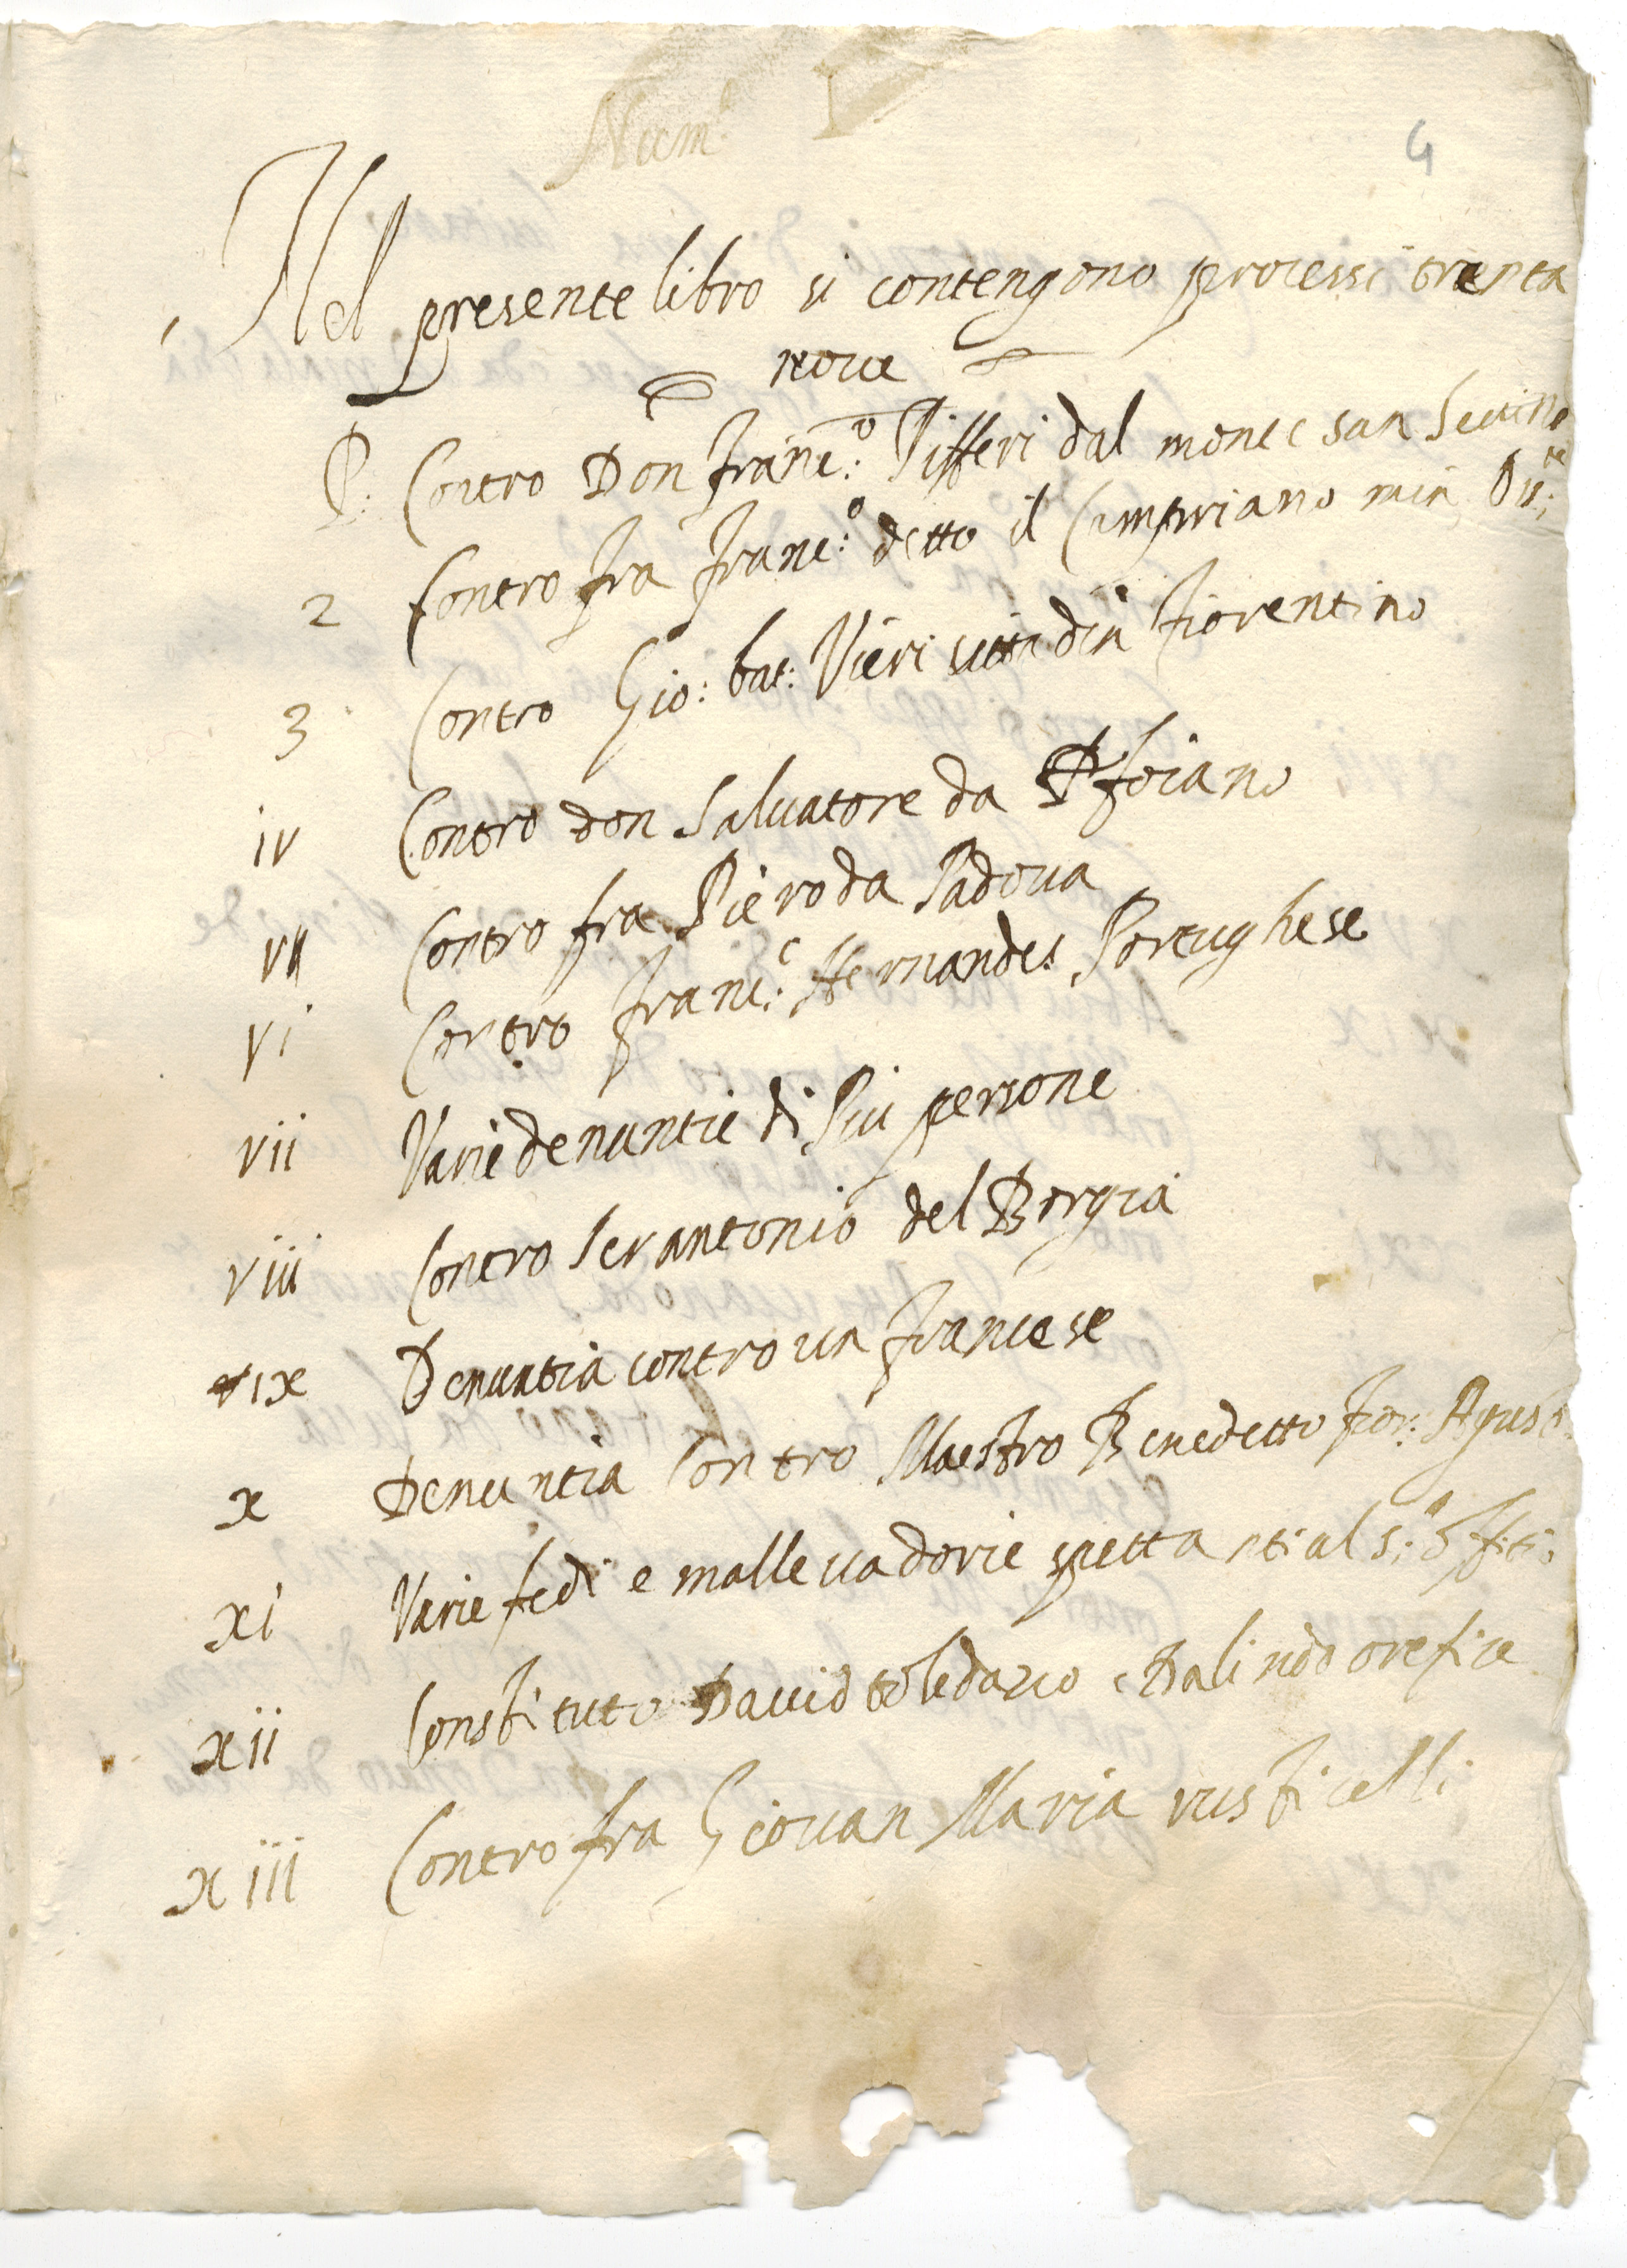 Num.o I
4
Nel presente libro si contengono processi trenta
nove
P: Contro Don Franc:o Pifferi dal monte san Savino
2 Contro fra Franc:o detto il Campriano min. Oss:te
3 Contro Gio: bat: Vieri cittadin fiorentino
iv Contro don Salvatore da foiano
v Contro fra Piero da Padova
vi Contro Franc:o Hernandes Portughese
vii Varie denuntie di Piu persone
viii Contro Ser antonio del Borgia
ix Denuntia contro un francese
x Denuntia Contro Maestro Benedetto fior: Agust.
xi Varie fedi e mallevadorie spettanti al S:o Offiti:
xii Constituto David toledano orefice
xiii Contro fra Giovan Maria rusticelli